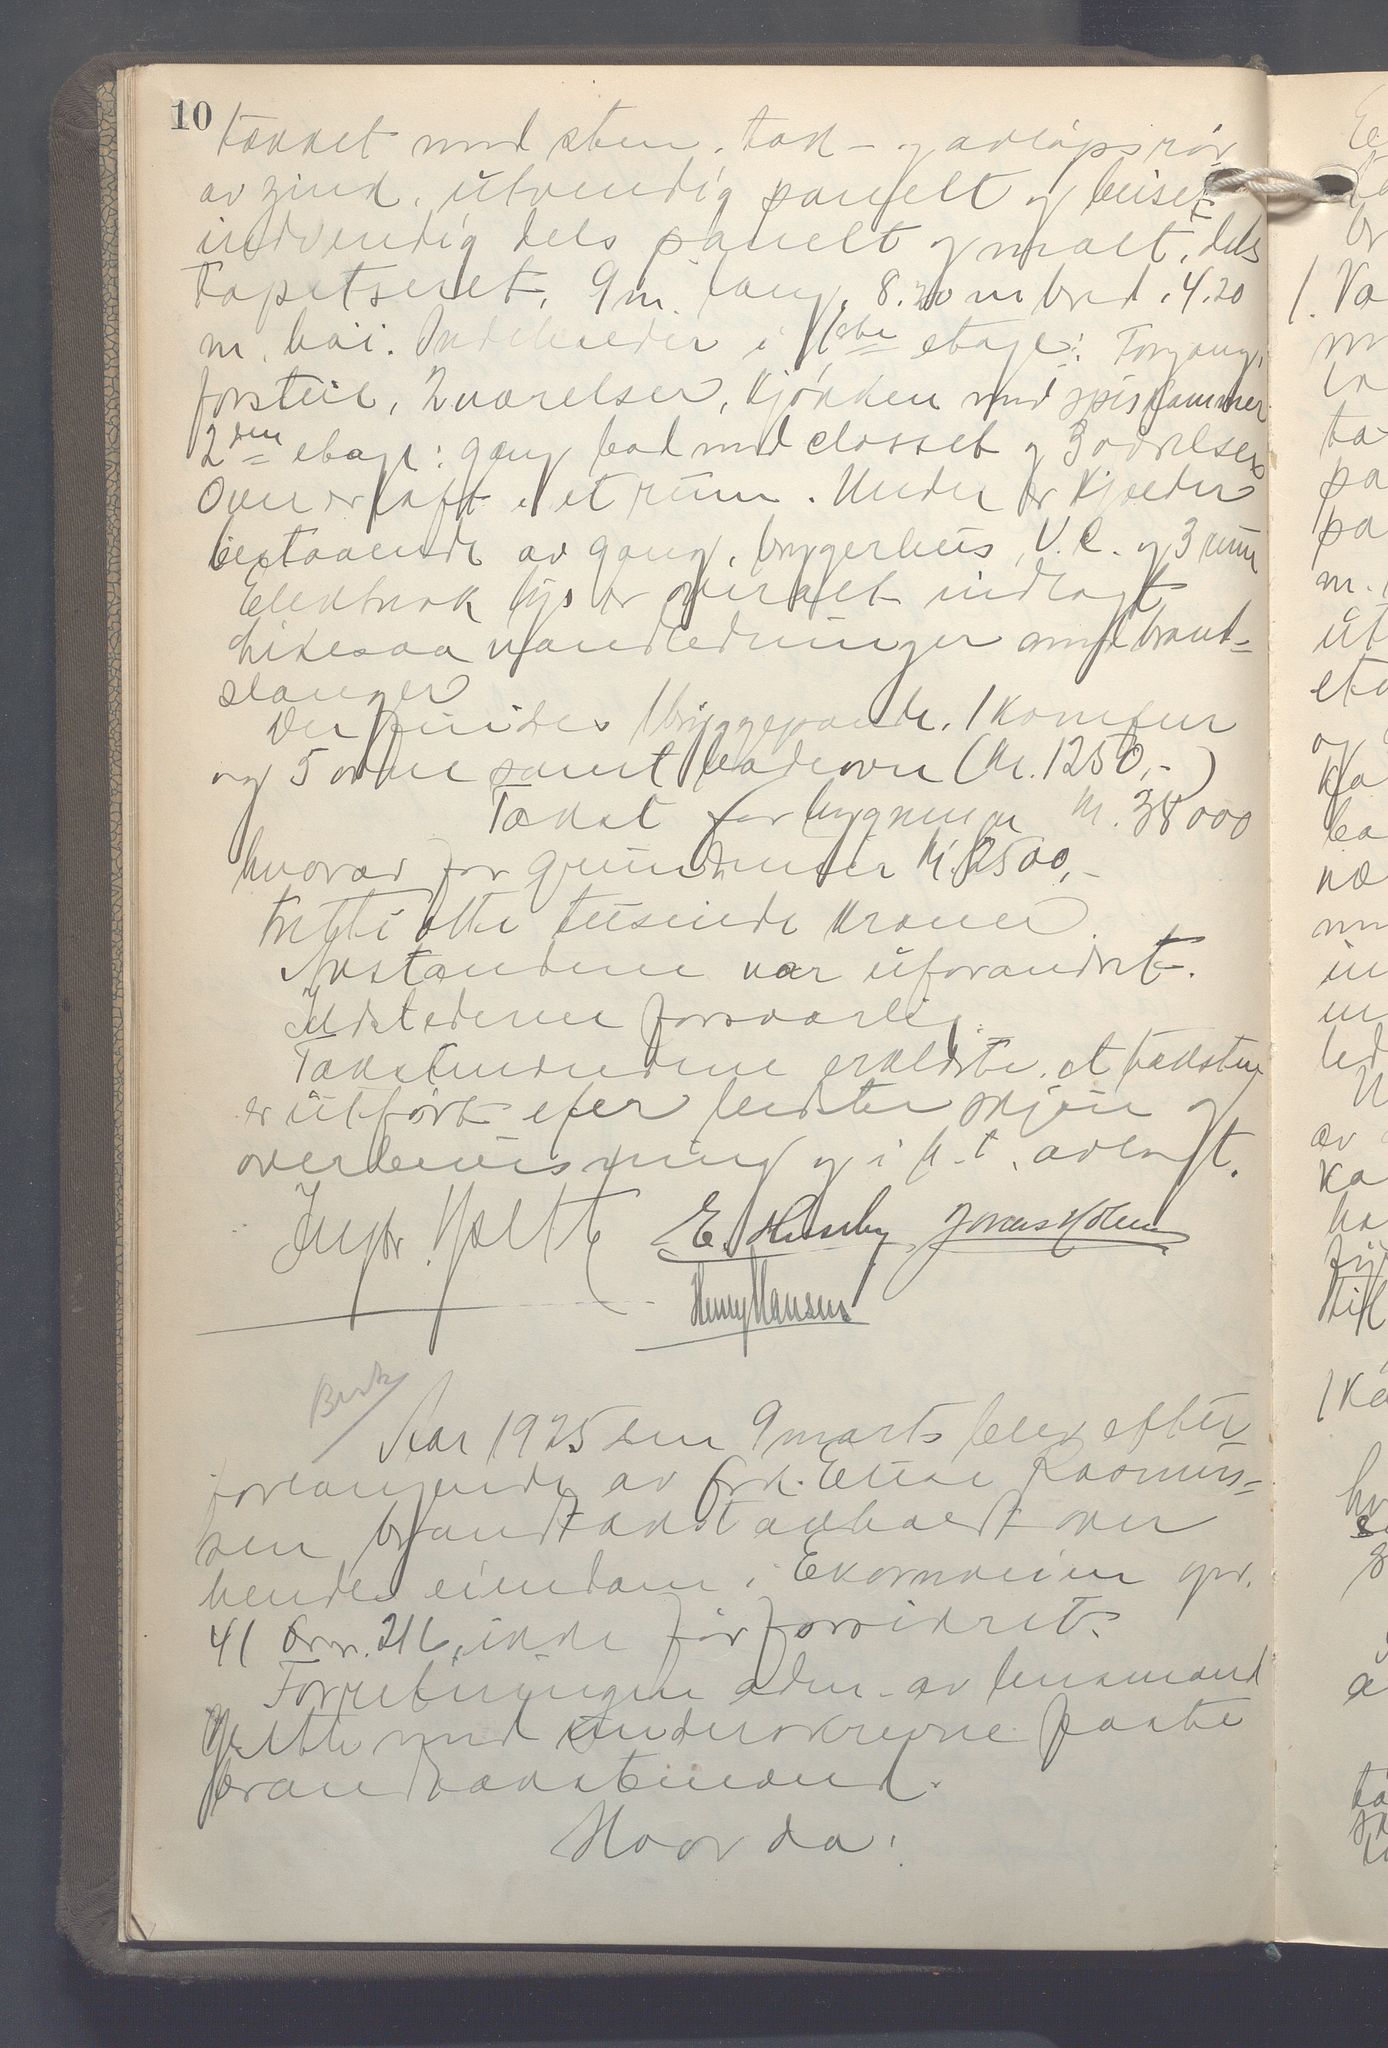 10
tækket med sten. tak- og avløpsrør
av zink, utvendig panelt og beiset
indvendig dels panelt og malt, dels
tapetseret, 9 m. lang, 8.20 m bred, 4.20
m. høi. Indeholder i 1ste etage: Forgang,
forstue, 2 værelser, kjøkken med spiskammer
2den etage: gang bad med closset og 3 værelser
Over er loft i et rum. Under er kjelder
bestaaende av gang, bryggerhus, V.C. og 3 rum
Elektrisk lys er overalt indlagt
Likesaa vandledninger med brand-
slanger
Der findes 1 bryggepande, 1 komfur
og 5 ovne samt badeovn (kr. 1250,-)
Takst for bygningen kr. 38000
hvorav for grundmur kr. 2500,-
tretti otte tusinde kroner.
Avstandene var uforandret.
Ildstederne forsvarlig.
Takstmændene erklærte, at taksten
er utført efter bedste skjøn og
overbevisning og i h.t. avlagt.
Ingbr. Hjelte E. Huseby Jonas Holm
Henry Hansen
Aar 1925 den 9 marts blev efter
forlangende av frk. Elise Rasmus-
sen brandtakst avholdt over
hendes eiendom i Ekornveien gnr.
41 brnr. 216, ikke før forsikret.
Forretningen adm. av lensmand
Hjelte med underskrevne faste
brandtakstmænd.
Hvorda: